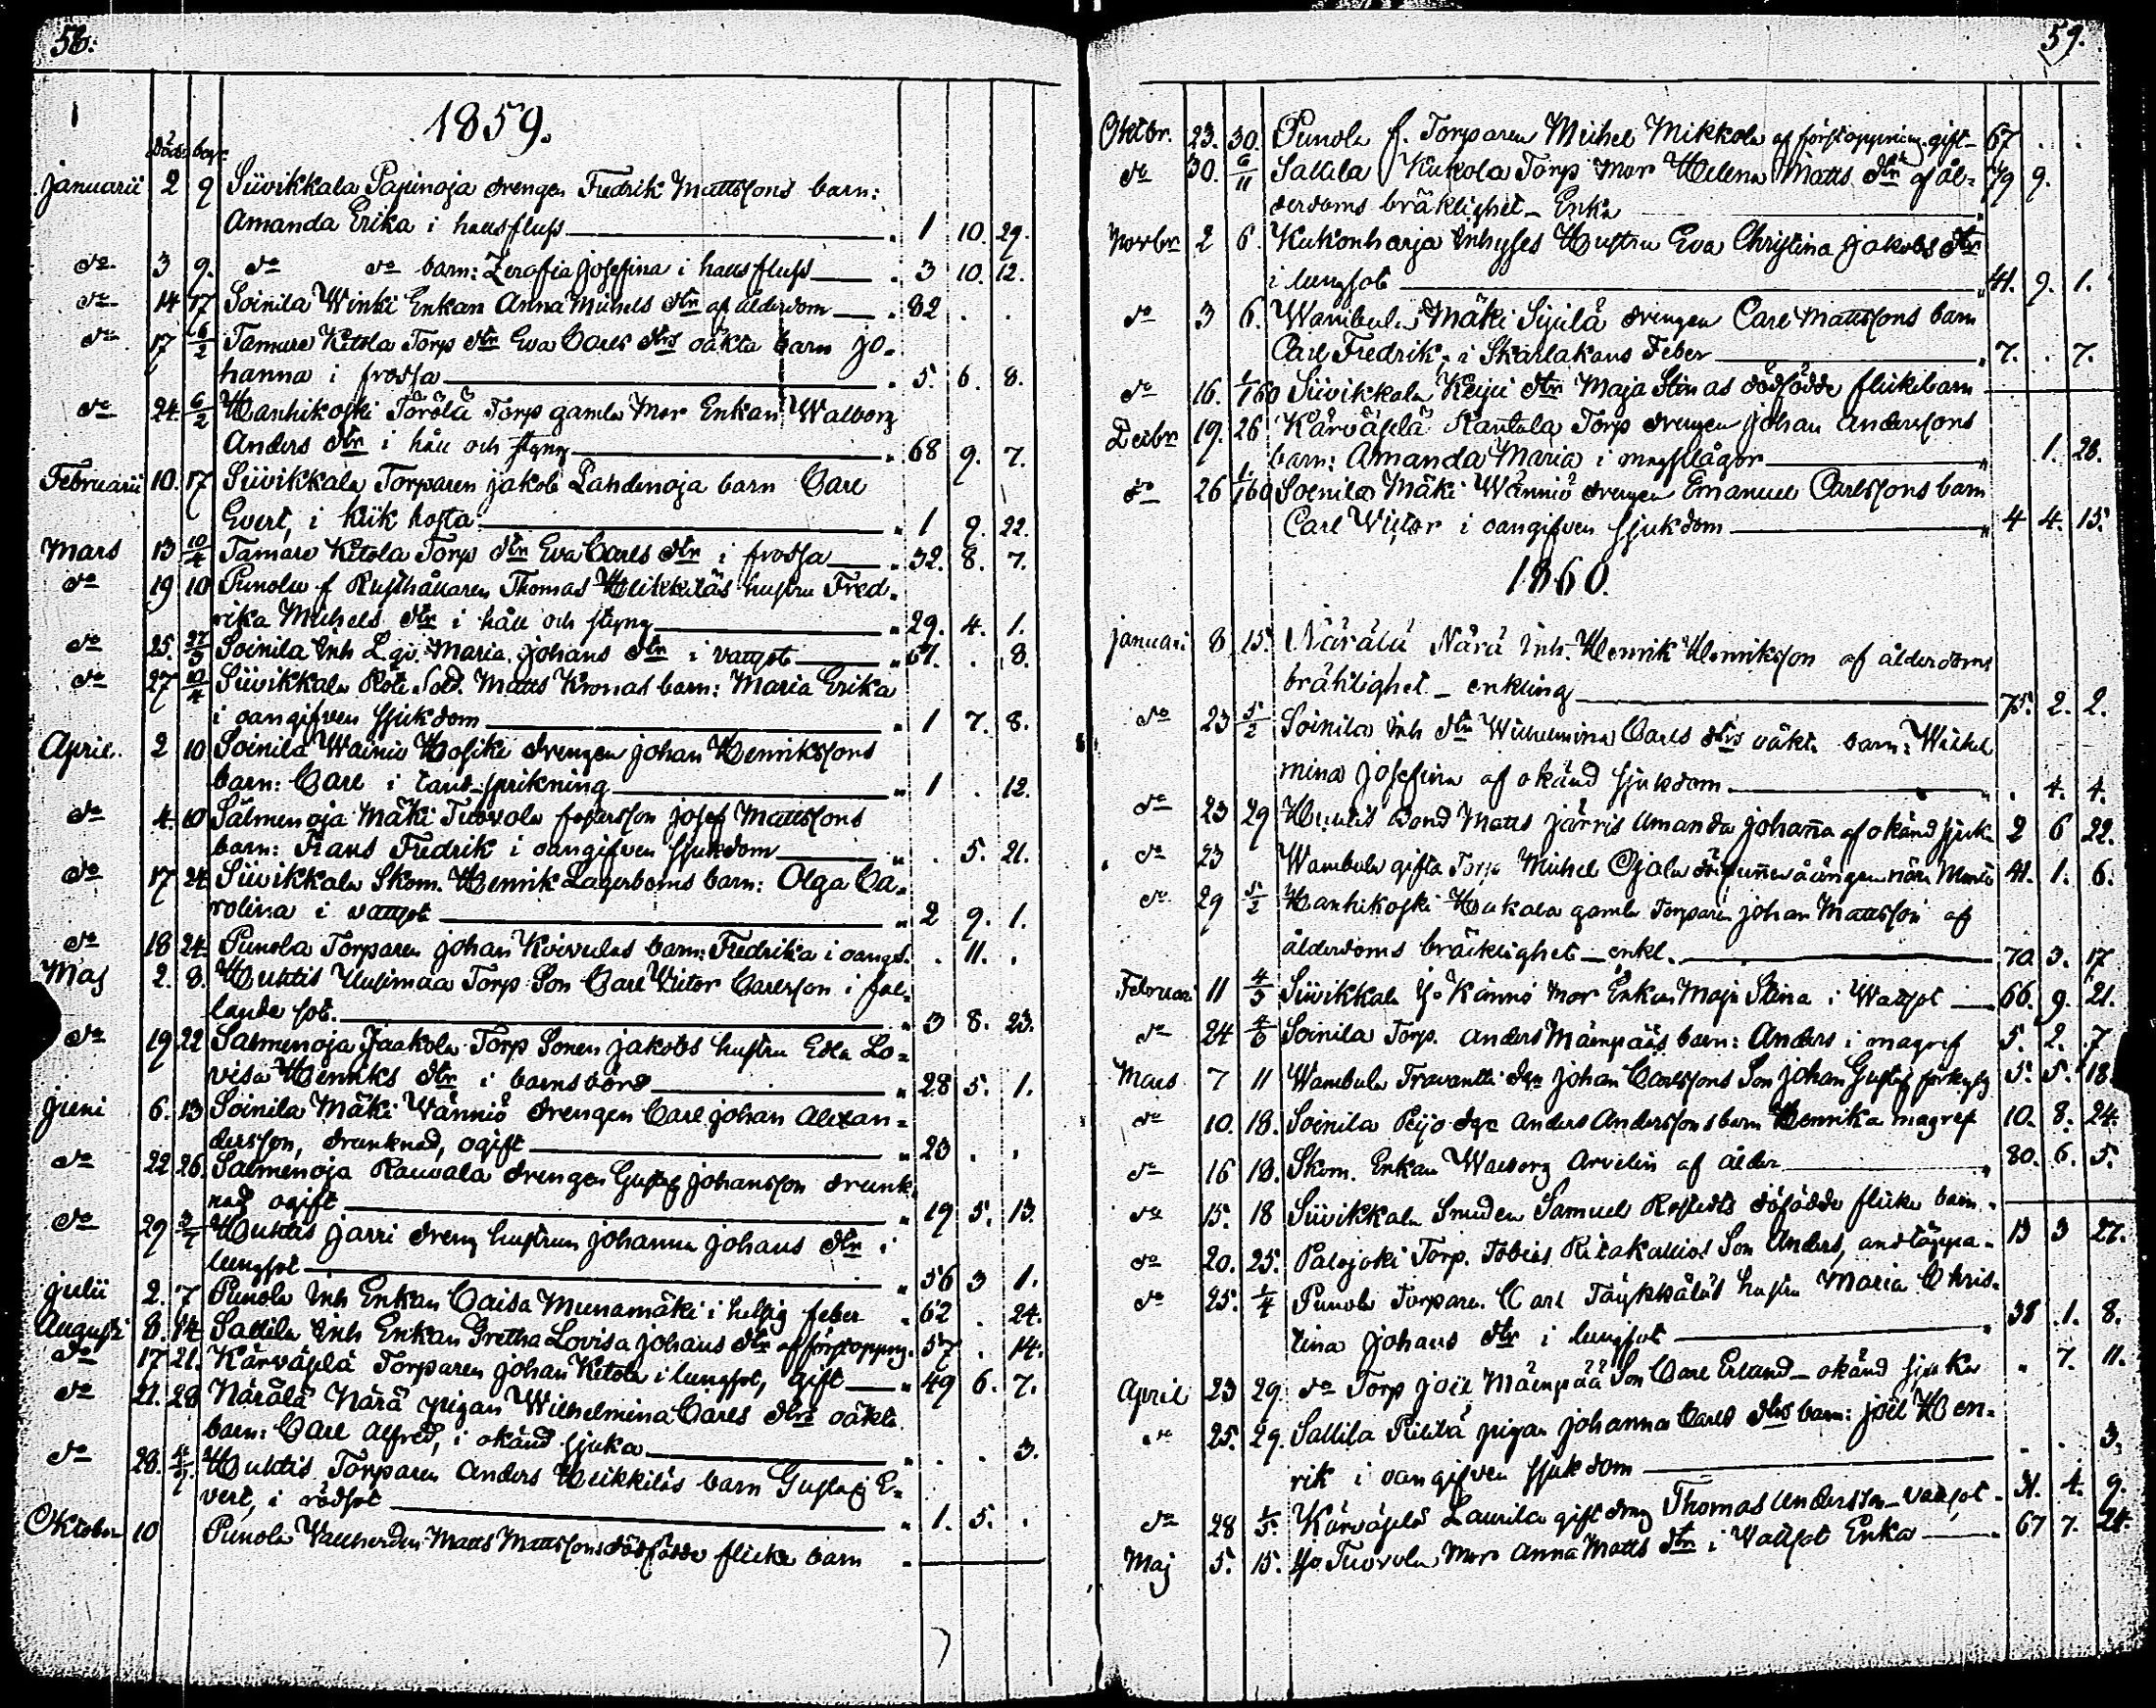 58.
1859.
Död. begr.
Januarii 2 9 Siivikkala Papinoja drengen Fredrik Mattssons barn:
Amanda Erika i halsfluss " 1 10. 29.
do 3 9. do do barn: Serafia Josefina i halsfluss " 3 10. 12.
do 14 17 Soinila Winki Enkan Anna Michels dtr af ålderdom " 82 . .
do 17 6/2 Tamare Kitola Torp dtr Eva Carls dtrs oäkta barn Jo-
hanna i frossa " 5. 6. 8.
do 24. 6/2 Hanhikoski Törölä Torp gamla Mor Enkan Walborg
Anders dtr i håll och styng " 68 9. 7.
Februarii 10. 17 Siivikkala Torparen Jakob Lahdenoja barn Carl
Evert, i kikhosta " 1 9. 22.
Mars 13 10/4 Tamare Kitola Torp dtr Eva Carls dtr i frossa " 32. 8. 7.
do 19 10 Punola f Rusthållaren Thomas Heikkiläs hustru Fred-
rika Michels dtr i håll och styng " 29. 4. 1.
do 25. 27/3 Soinila Inh Maria Johans dtr i vattsot " 67. . 8.
do 27 10/4 Siivikkala Rote Sold. Matts Kronas barn: Maria Erika
i oangifven sjukdom " 1 7. 8.
April. 2 10 Soinila Wainio Hosike drengen Johan Henrikssons
barn: Carl i tandsprikning " 1 . 12.
do 4. 10 Salmenoja Mäki Tuovola Josef Mattssons
barn: Frans Fredrik i oangifven sjukdom " . 5. 21.
do 17 24 Siivikkala Skom. Henrik Lagerboms barn: Olga Ca-
rolina i vattsot " 2 9. 1.
do 18 24. Punola Torparen Johan Koivulas barn: Fredrika i oangf. . 11. .
Maj 2. 8. Huhtis Uusimaa Torp Son Carl Victor Carlsson i fal-
lande sot. " 3 8. 23.
do 19 22 Salmenoja Jaakola Torp Sonen Jakobs hustru Edla Lo-
visa Henriks dtr i barnsbörd " 28 5. 1.
Juni 6. 13 Soinila Mäki Wänniö drengen Carl Johan Alexan-
dersson, drunknad, ogift " 23 . .
do 22 26. Salmenoja Rauvala drengen Gustaf Johansson drunk-
nad ogift " 19 5. 13.
do 29 3/7 Huhtis Jarri dreng hustrun Johanna Johans dtr i
lungsot " 56 3 1.
Julii 2. 7 Punola Inh Enkan Caisa Munamäki i hetsig feber " 62 . 24.
Augusti 8. 14 Sallila Inh Enkan Gretha Lovisa Johans dtr af förstoppng. 57 . 14.
do 17 21. Kärväsjlä Torparen Johan Kitola i lungsot, gift " 49 6. 7.
do 21. 28 Närälä Närä pigan Wilhelmina Carls dtrs oäkta
barn: Carl Alfred, i okänd sjuka " . . 3.
do 28. 4/9. Huhtis Torparen Anders Heikkiläs barn Gustaf E-
vert, i rödsot " 1. 5. .
Oktober 10 Punola Vallherden Matts Mattssons dödfödde flicke barn "
59.
Oktbr. 23. 30. Punola f. Torparen Michel Mikkola af förstoppning. gift 67 . .
do 30. 6/11 Sallila Kukola Torp Mor Helena Matts dtr af ål- 79 9.
derdoms bräklighet Enka
Novbr 2 6. Kukonharja Inhyses Hustru Eva Christina Jakobs dtr
i lungsot " 41. 9. 1.
do 3 6. Wambula Mäki Sijilä drengen Carl Mattssons barn
Carl Fredrik, i Skarlakans Feber " 7. . 7.
do 16. 1/1 60 Siivikkala Keiju dtr Maja Stinas dödfödde flickebarn
Decbr 19. 26 Kärväsjlä Rantala Torp drengen Johan Anderssons
barn: Amanda Maria i magplågor " 1. 28.
do 26 1/1 60 Soinila Mäki Wänniö drengen Emanuel Carlssons barn
Carl Victor i oangifven sjukdom " 4 4. 15.
1860.
Januari 8 15. Närälä Närä Inh. Henrik Henriksson af ålderdoms
bräklighet - enkling 75. 2. 2.
do 23 5/2 Soinila Inh dtr Wilhelmina Carls dtrs oäkta barn: Wilhel
mina Josefina af okänd sjukdom " . 4. 4.
do 23 29 Huhtis Bond Matts Järris Amanda Johanna af okänd sjuk 2 6 22.
do 23 Wambula gifta Torp Michel Ojala 41. 1. 6.
do 29 5/2 Hanhikoski Hukala gamla Torparen Johan Mattsson af
ålderdoms bräcklighet - enkl. 70 3. 17
Februari 11 4/3 Siivikkala Yo Känni Mor Enkan Maja Stina i Wattsot 66. 9. 21.
do 24 4/3 Soinila Torp. Anders Mäenpääs barn: Anders i magref 5. 2. 7
Mars 7 11 Wambula Travantti dgn Johan Carlssons Son Johan Gustaf 5. 5. 18.
do 10. 18. Soinila Peijo dgn Anders Anderssons barn Henrika magref 10. 8. 24.
do 16 18. Skom. Enkan Walborg Arvelin af ålder " 80. 6. 5.
do 15. 18 Siivikkala Smeden Samuel Rostedts döfödde flicke barn.
do 20. 25. Palojoki Torp. Tobias Ritakallios Son Anders, andtäppa. 13 3 27.
do 25. 1/4 Punola Torparen Carl Täykkäläs hustru Maria Chris-
tina Johans dtr i lungsot " 38 .1. 8.
April 23 29. do Torp Joel Mäenpää Son Carl Erland - okänd sjuka " 7. 11.
do 25. 29. Sallila Pietilä pigan Johanna Carls dtrs barn: Joel Hen-
rik i oangifven sjukdom . . 3.
do 28 1/5. Kärväsjlä Laurila gift drng Thomas Andersson - vattsot 31. 4. 9.
Maj 5. 15. Yo Tuovola Mor Anna Matts dtr i Wattsot Enka " 67 7. 24.